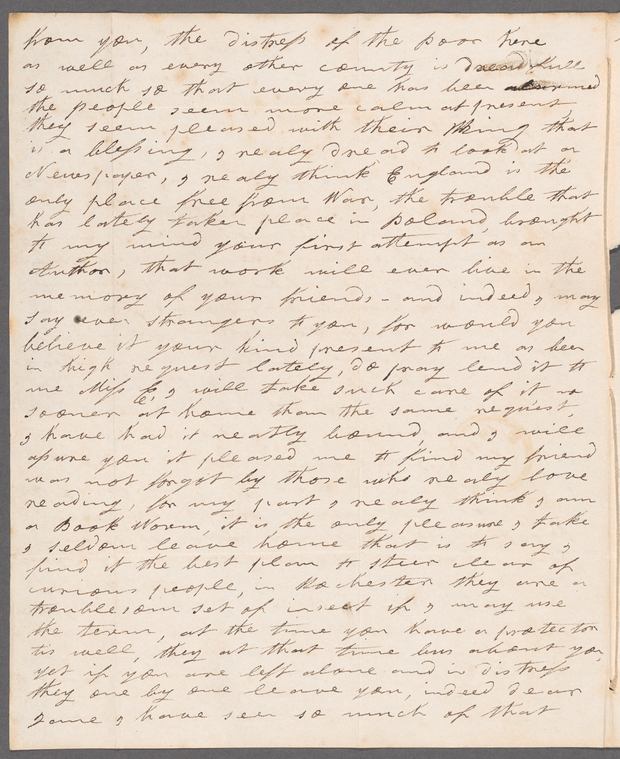 from you, the distress of the poor here
as well as every other county is dreadfull
so much so that every one has been alarmed
the people seem more calm at present
they seem pleased with their King that
is a blessing, I realy dread to look at a
Newspaper, I realy think England is the
only place free from War, the trouble that
has lately taken place in Poland, brought
to my mind your first attempt as an
Author, that work will ever live in the
memory of your friends - and indeed I may
say even strangers to you, for would you
believe it your kind present to me as been
in high request lately, do pray lend it to
me Miss E, I will take such care of it
sooner at home than the same request,
I have had it neatly bound, and I will
assure you it pleased me to find my friend
was not forgot by those who realy love
reading, for my part I realy think I am
a Book Worm, it is the only pleasure I take
I seldom leave home that is to say I
find it the best plan to steer clear of
curious people, in Rochester they are a
troublesom set of insect if I may use
the term, at the time you have a protector
tis well, they at that time bus about you,
yet if you are left alone and in distress
they one by one leave you, indeed dear
Jane I have seen so much of that